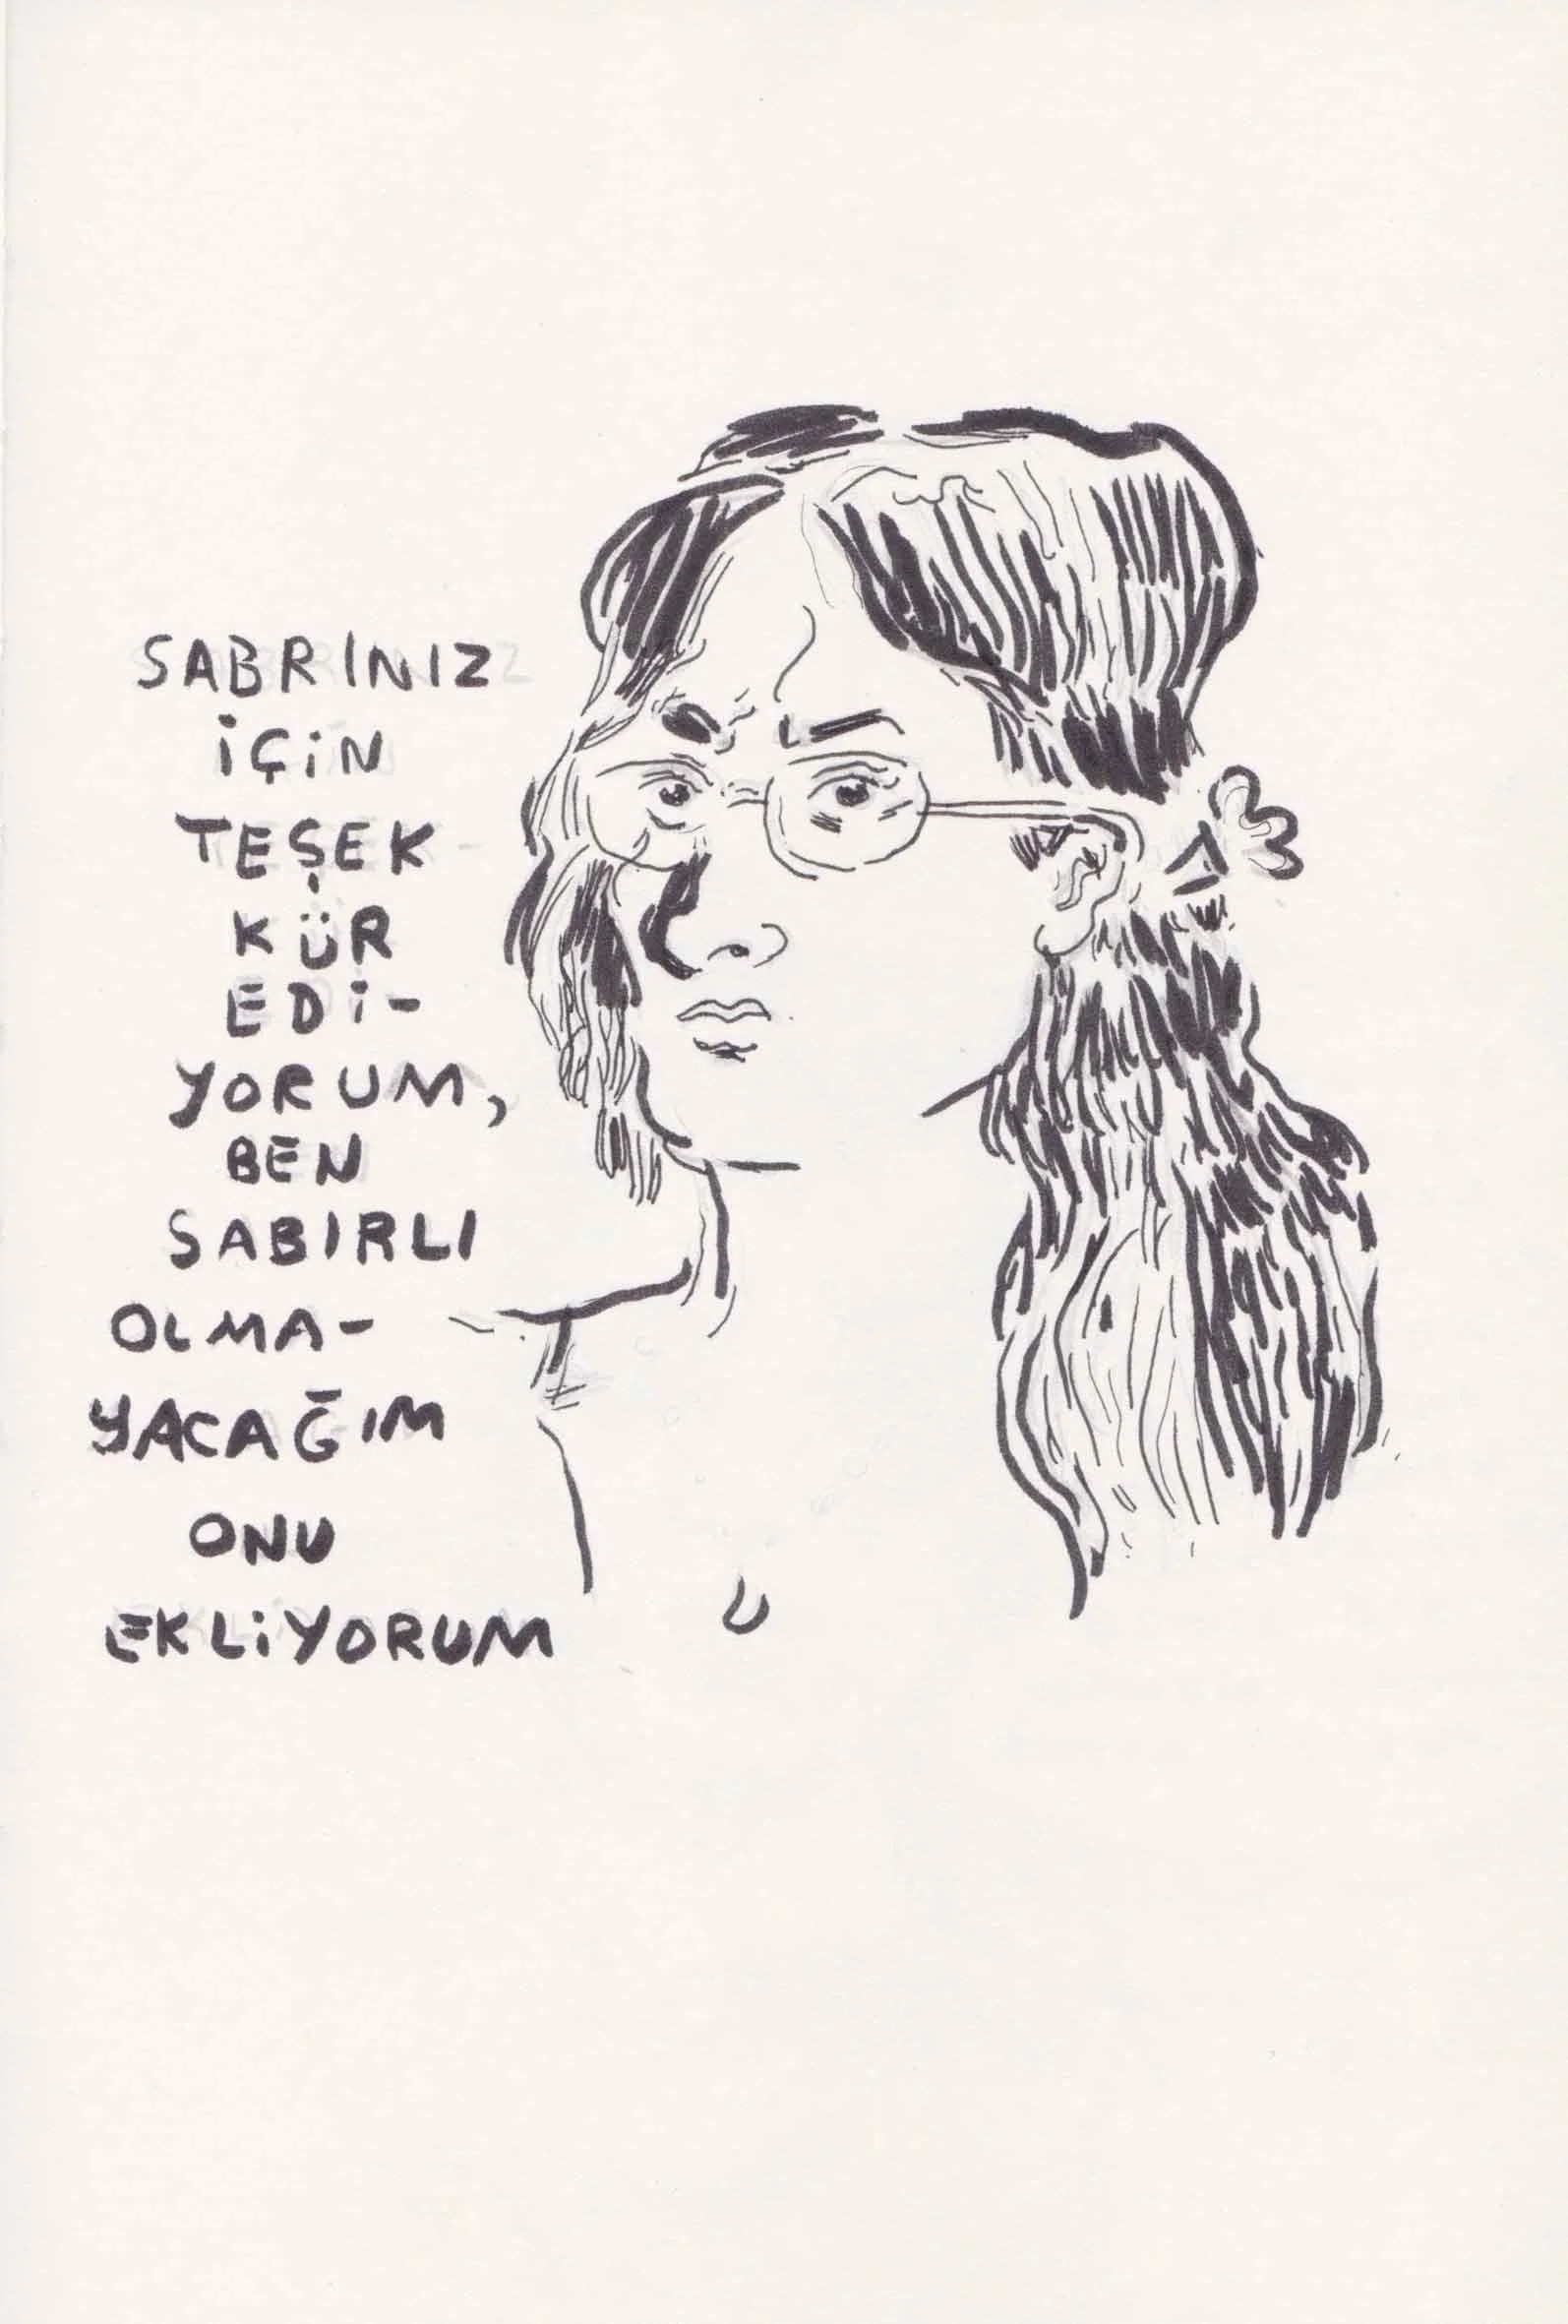 SABRINIZ
İÇİN
TEŞEK
KÜR
EDİ-
YORUM,
BEN
SABIRLI
OLMA-
YACAĞIM
ONU
EKLİYORUM